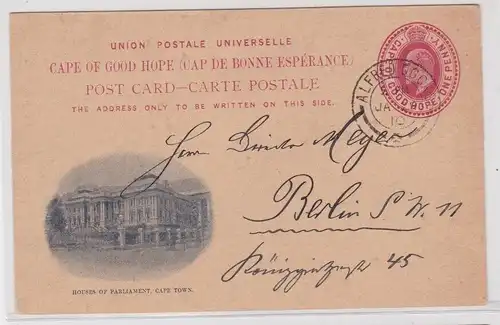 UNION POSTALE UNIVERSELLE
CAPE OF GOOD HOPE (CAP DE BONNE ESPÉRANCE)
POST CARD—CARTE POSTALE
THE ADDRESS ONLY TO BE WRITTEN ON THIS SIDE.
ONE PENNY
GOOD HOPE
ALFRED
JA
10
Herrn Director Meyer
Berlin S.W. 11
45
HOUSES OF PARLIAMENT, CAPE TOWN.